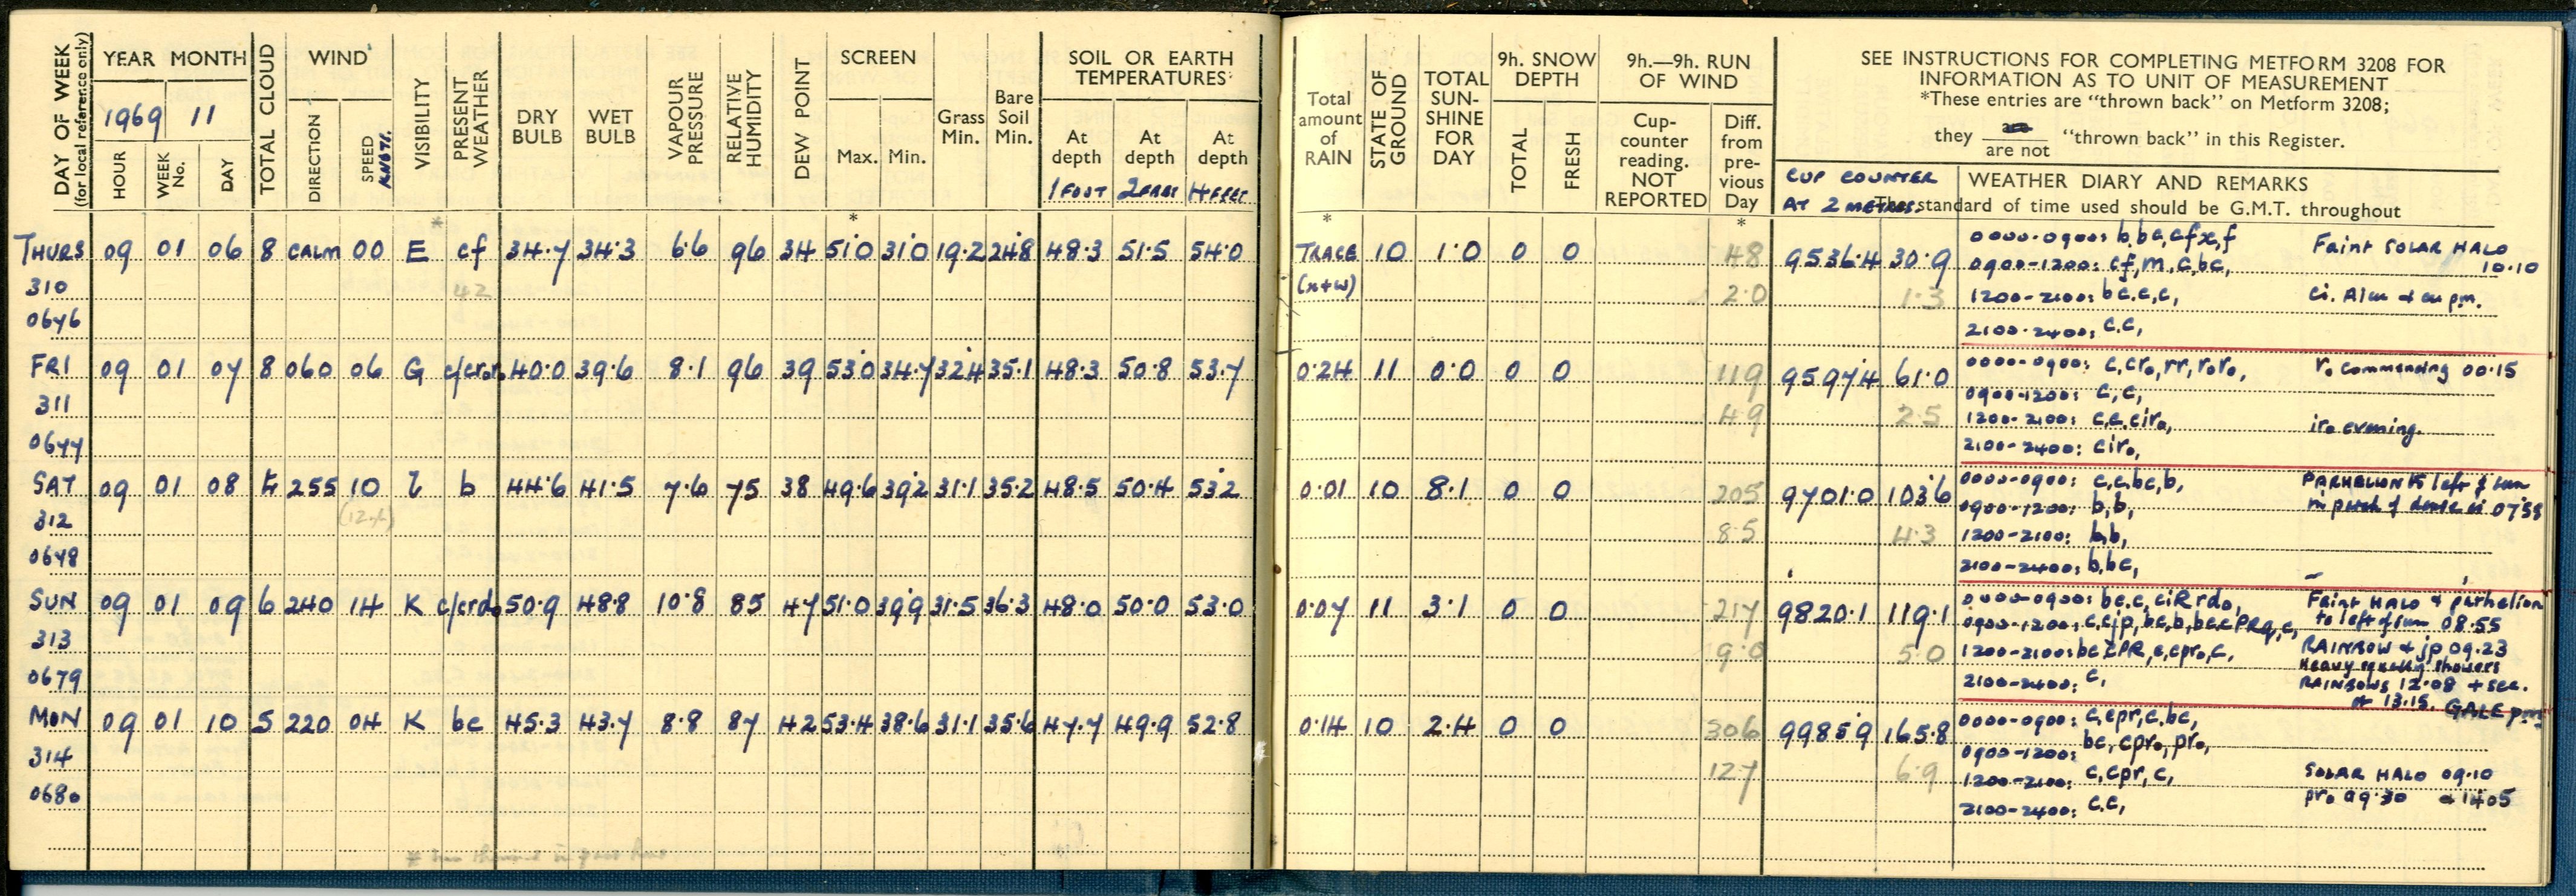 DAY OF WEEK
(for local reference only)
YEAR MONTH
1969 11
HOUR WEEK No. DAY
TOTAL CLOUD
WIND
DIRECTION SPEED KNOTS.
VISIBILITY
PRESENT WEATHER
DRY BULB
WET BULB
VAPOUR PRESSURE
RELATIVE HUMIDITY
DEW POINT
SCREEN
Max. Min.
Grass Min.
Bare Soil Min.
SOIL OR EARTH TEMPERATURES
At depth At depth At depth
1 FOOT 2 FEET 4 FEET
Total amount of RAIN
STATE OF GROUND
TOTAL SUN-SHINE FOR DAY
9h. SNOW DEPTH
TOTAL FRESH
9h.—9h. RUN OF WIND
Cup-counter reading. NOT REPORTED
Diff. from pre-vious Day
SEE INSTRUCTIONS FOR COMPLETING METFORM 3208 FOR
INFORMATION AS TO UNIT OF MEASUREMENT
*These entries are "thrown back" on Metform 3208;
they are are not "thrown back" in this Register.
CUP COUNTER AT 2 METRES.
WEATHER DIARY AND REMARKS
The standard of time used should be G.M.T. throughout
* * * *
THURS 09 01 06 8 CALM 00 E cf 34.7 34.3 6.6 96 34 51.0 31.0 19.2 24.8 48.3 51.5 54.0 TRACE 10 1.0 0 0 48 9536.4 30.9 0000-0900: b,bc,cfx,f Faint SOLAR HALO
0900-1200: cf,m,c,bc, 10.10
310 42 (x+w) 2.0 1.3 1200-2100: bc,c,c, Ci. Alcu & cu pm.
0676 2100-2400: c,c,
FRI 09 01 07 8 060 06 G c/cror0 40.0 39.6 8.1 96 39 53.0 34.7 32.4 35.1 48.3 50.8 53.7 0.24 11 0.0 0 0 119 9597.4 61.0 0000-0900: c,cr0,rr,r0r0, r0 commencing 00.15
0900-1200: c,c,
311 49 2.5 1200-2100: c,c,cir0, ir0 evening.
0677 2100-2400: cir0,
SAT 09 01 08 4 255 10 I b 44.6 41.5 7.6 75 38 49.6 39.2 31.1 35.2 48.5 50.4 53.2 0.01 10 8.1 0 0 205 9701.0 103.6 0000-0900: c,c,bc,b, PARHELION to left of sun
0900-1200: b,b, in patch of dense ci 0758
312 (12.4) 8.5 4.3 1200-2100: b,b,
0678 2100-2400: b,bc,
SUN 09 01 09 6 240 14 K c/crd0 50.9 48.8 10.8 85 47 51.0 39.9 31.5 36.3 48.0 50.0 53.0 0.07 11 3.1 0 0 217 9820.1 119.1 0000-0900: bc,c,ciRrd0, Faint HALO & parhelion
0900-1200: c,cjp,bc,b,bc,cPRq,c, to left of sun 08.55
313 9.0 5.0 1200-2100: bc cPR,c,cpr0,c, RAINBOW & jp 09.23
Heavy squally showers
0679 2100-2400: c, RAINBOWS 12.08 + sec.
& 13.15. GALE pm
MON 09 01 10 5 220 04 K bc 45.3 43.7 8.8 87 42 53.4 38.6 31.1 35.6 47.7 49.9 52.8 0.14 10 2.4 0 0 306 9985.9 165.8 0000-0900: c,cpr,c,bc,
0900-1200: bc,cpr0,pr0,
314 127 6.9 1200-2100: c,cpr,c, SOLAR HALO 09.10
0680 2100-2400: c,c, pr0 09.30 & 1405